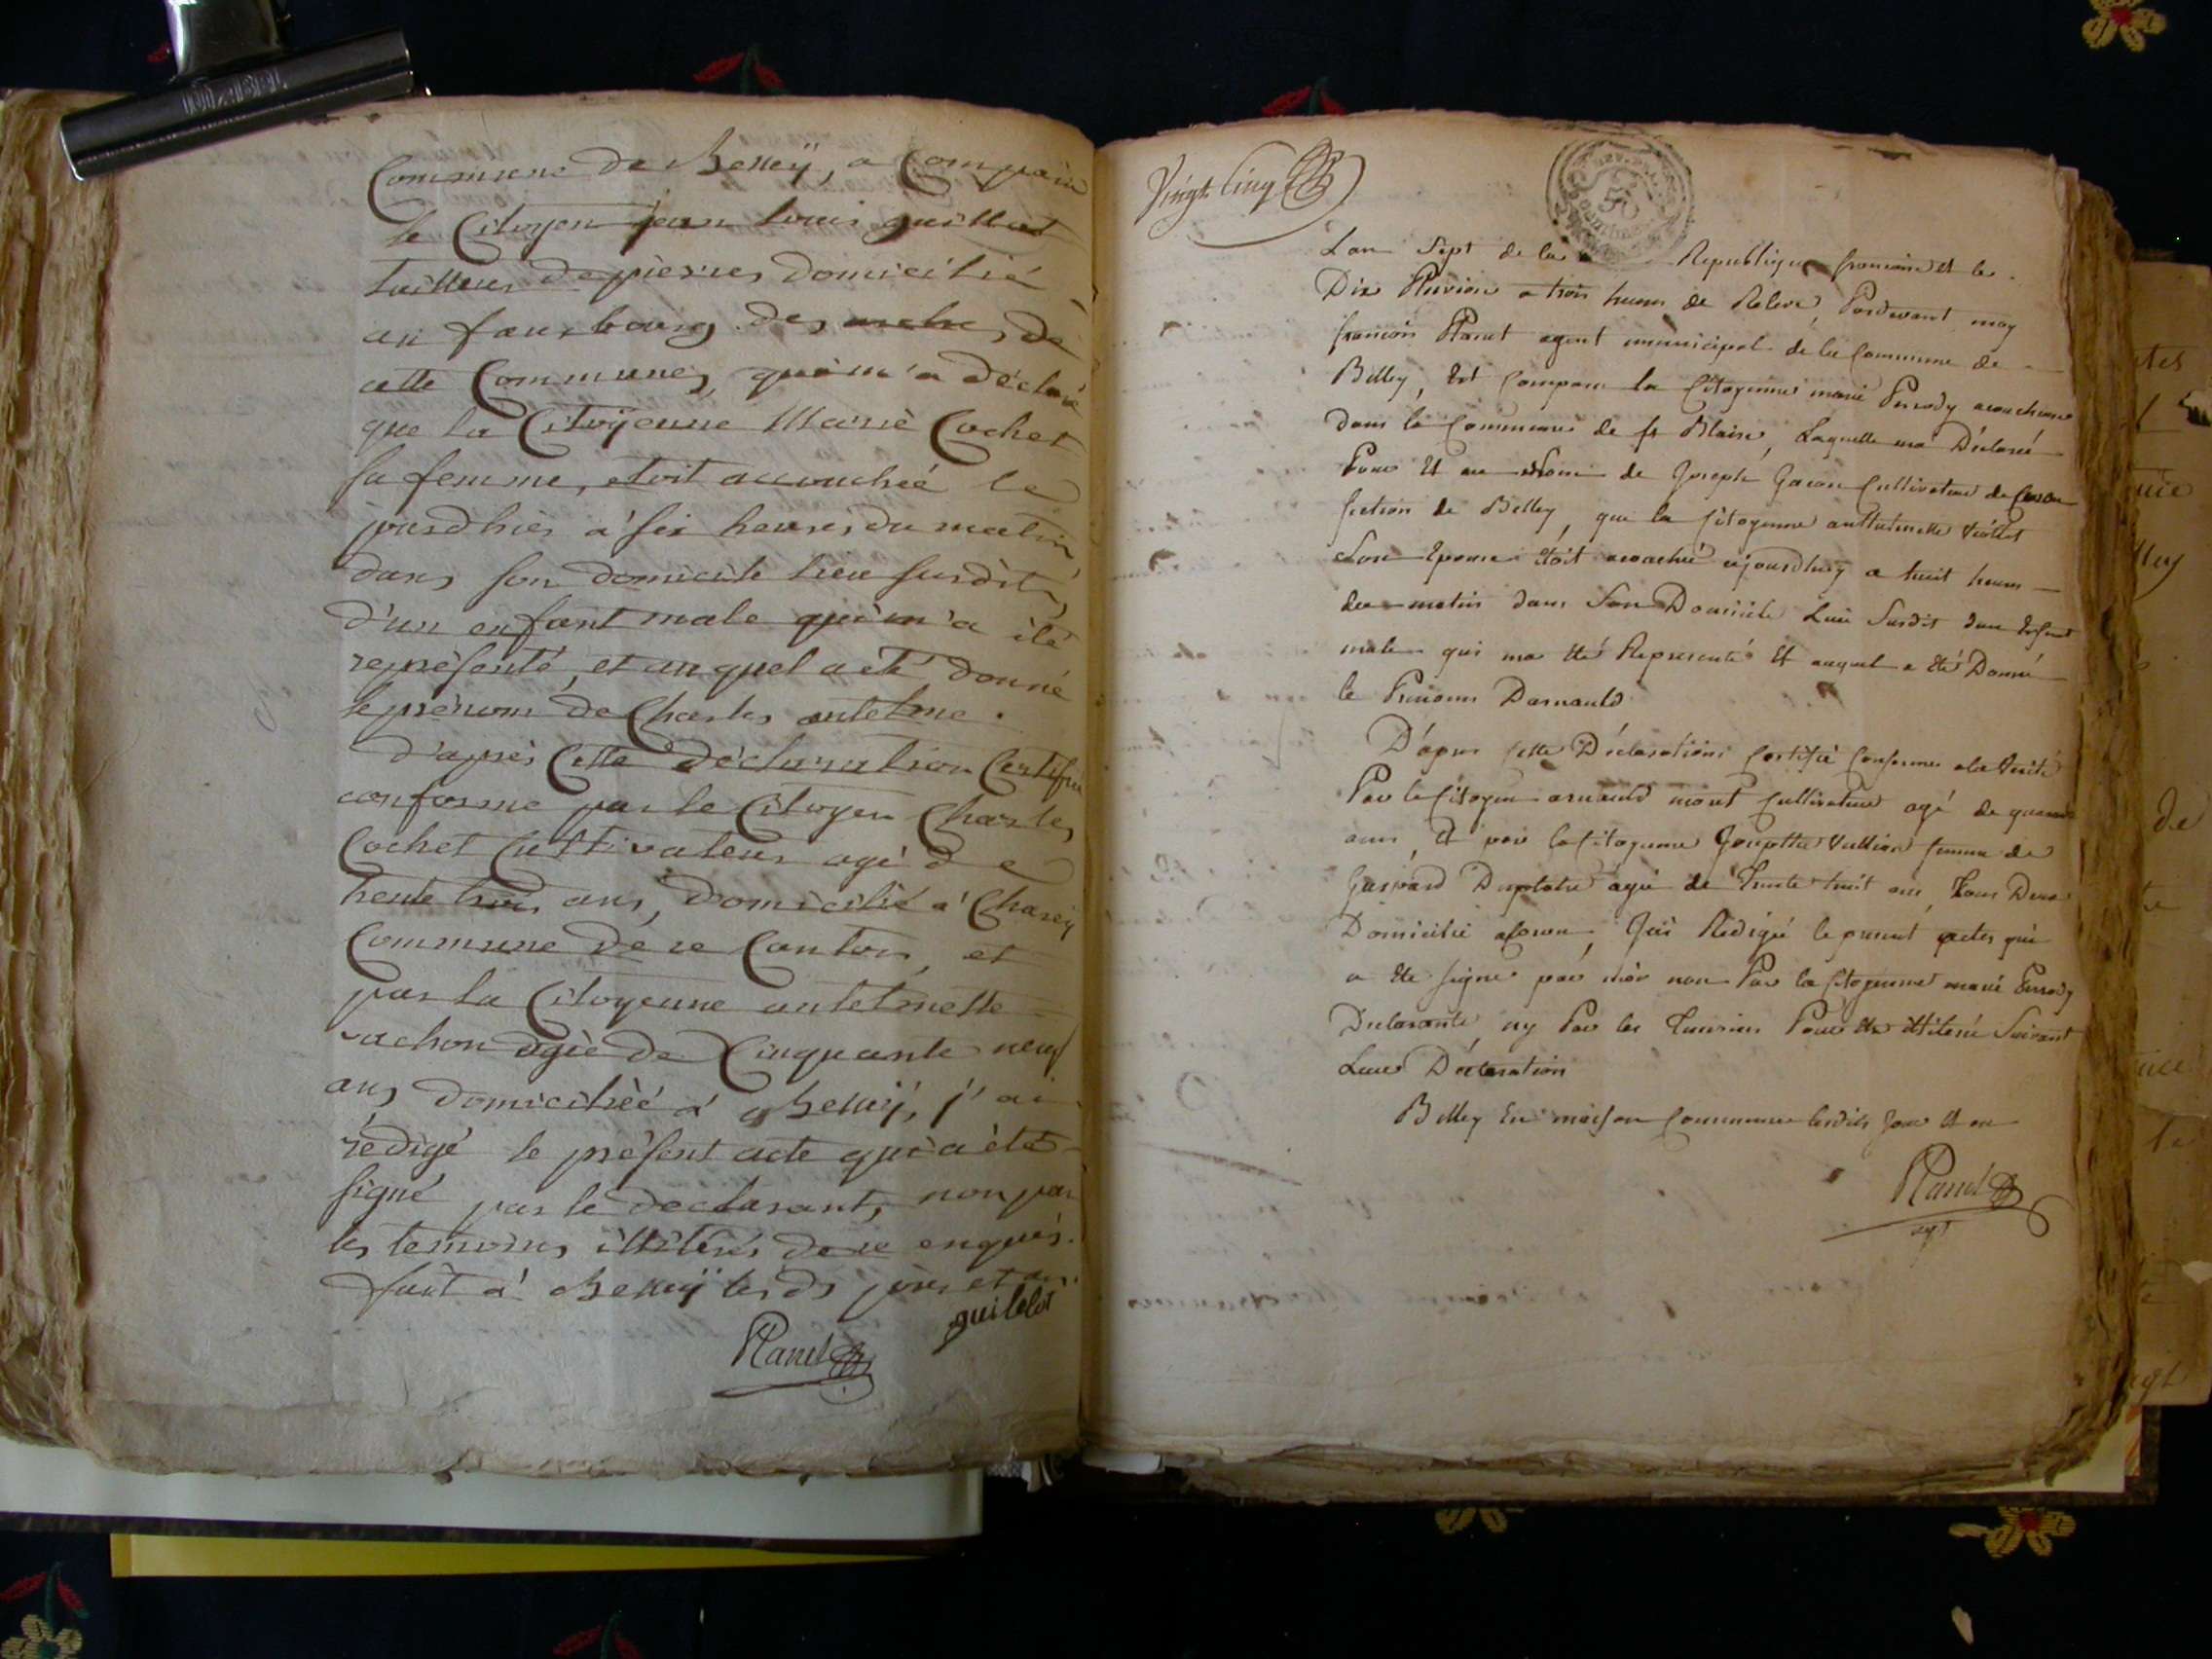 Commune de Belleÿ, a Comparu
le Citoyen jean louis guillot
tailleur de pierres, domicilié
au fauxbourg des de
cette Commune, qui m'a déclaré
que la Citoÿenne Marie Cochet
sa femme, etoit accouchée le
jourdhier à six heures du matin
dans son domicile lieu susdit,
d'un enfant male qui m'a èté
représenté, et auquel a été donné
le prénom de Charles antelme.
d'après Cette déclaration Certifiée
conforme par le Citoyen Charles
Cochet Cultivateur agé de
trente trois ans, domicilié à
Commune de ce Canton, et
par la Citoyenne antelmette
vachon agée de Cinquante neuf
ans domiciliée à Belleÿ, j'ai
rédigé le présent acte qui a èté
signé par le declarant, non par
les temoins illitérés de ce enquis.
fait à Belleÿ lesds jour et an.
guillot
Planet
Vingt Cinq
50
Lan Sept de la Republique francaise et le
Dix Pluviose a trois heures de Relevé, Pardevant moy
francois Planet agent municipal de la Commune de
Belley, Est Comparu la Citoyenne marie Perrody acoucheuse
dans la Commune de st Blaise, Laquelle ma Déclaré
Pour Et au Nom de Joseph Cultivateur de
section de Belley, que la Citoyenne anthelmette
Son Epouse étoit acouchée ajourdhuy a huit heures
du matin dans Son Domicile Lieu Susdit dun Enfant
male qui ma été Representé Et auquel a été Donné
le Prenoms Darnauld
D'apres Cette Déclaration Certifié Conforme a la verité
Par le Citoyen arnauld mont Cultivateur agé de quarante
ans, Et par la Citoyenne Josephtte Vullion femme de
Gaspard agée de Trente huit ans, Tous Deux
Domicilié, Jai Rédigé le present actes qui
a été signe par moi non Par la Citoyenne marie Perrody
Declarante, ny Par les Temoins Pour Etre illiteré Suivant
Leur Déclaration
Belley En maison Commune lesdits Jour Et an
Planet
agt